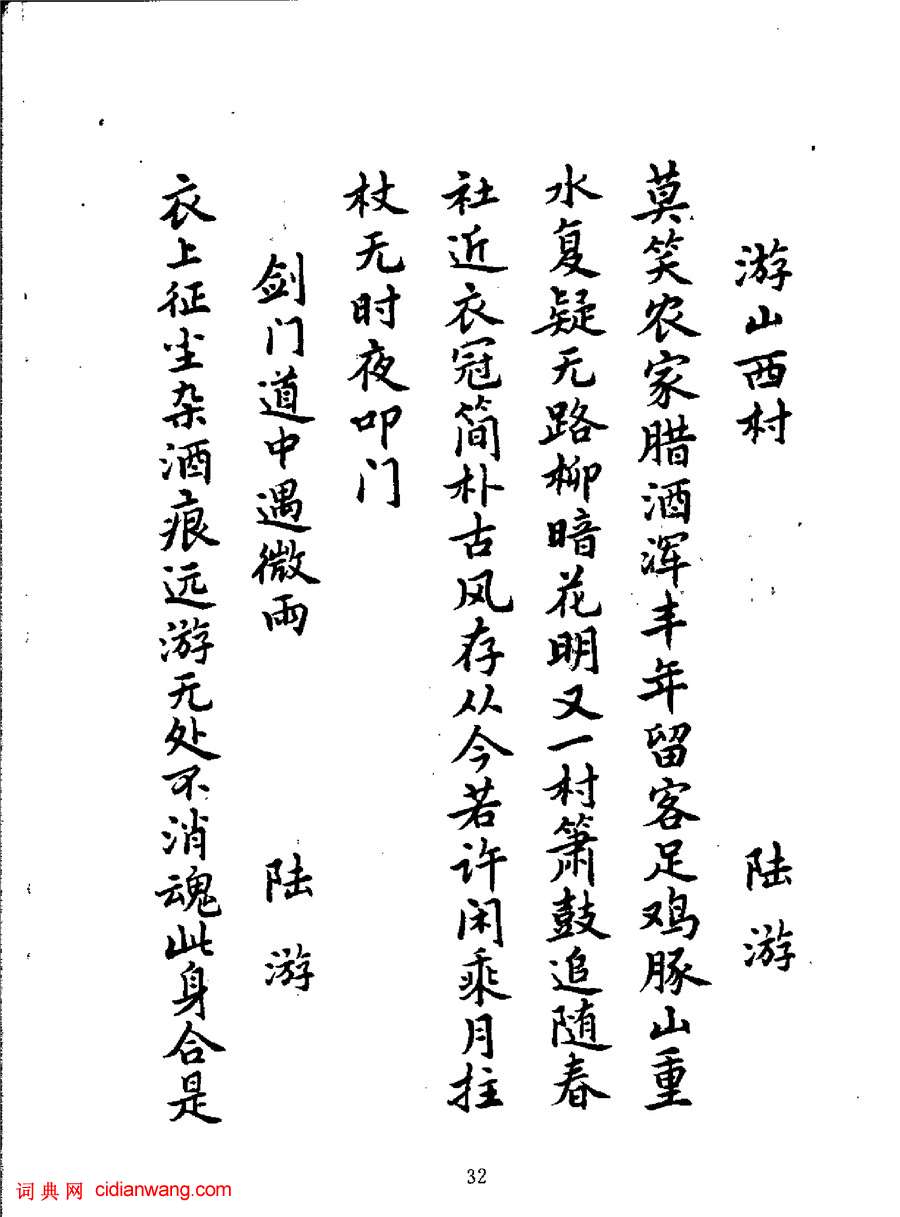 游山西村 陆游
莫笑农家腊酒浑丰年留客足鸡豚山重
水复疑无路柳暗花明又一村箫鼓追随春
社近衣冠简朴古风存从今若许闲乘月拄
杖无时夜叩门
剑门道中遇微雨 陆游
衣上征尘杂酒痕远游无处不消魂此身合是
32
词典网 cidianwang.com